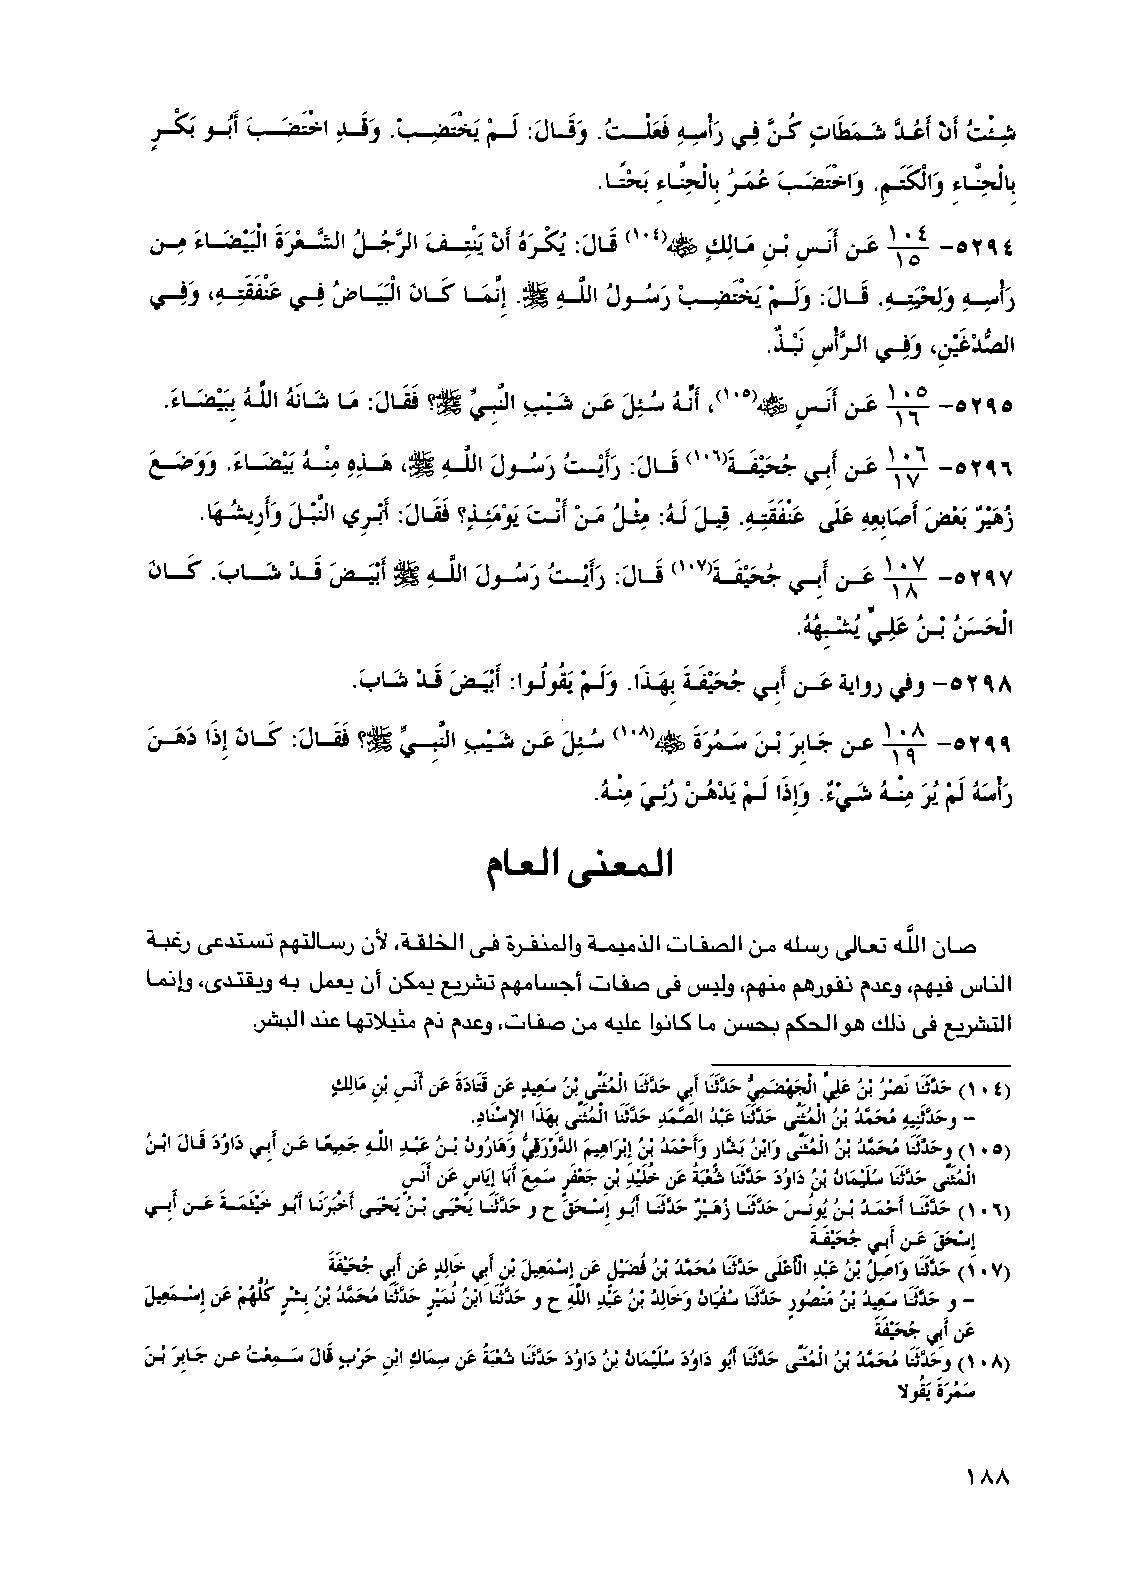 شِئْتُ أَنْ أَعُدَّ شَمَطَاتٍ كُنَّ فِي رَأْسِهِ فَعَلْتُ. وَقَالَ: لَمْ يَخْتَضِبْ. وَقَدِ اخْتَضَبَ أَبُو بَكْرٍ
بِالْحِنَّاءِ وَالْكَتَمِ. وَاخْتَضَبَ عُمَرُ بِالْحِنَّاءِ بَحْتًا.
٥٢٩٤- ١٠٤/١٥ عَن أَنَسِ بْنِ مَالِكٍ رضي الله عنه(١٠٤) قَالَ: يُكْرَهُ أَنْ يَنْتِفَ الرَّجُلُ الشَّعْرَةَ الْبَيْضَاءَ مِن
رَأْسِهِ وَلِحْيَتِهِ. قَالَ: وَلَمْ يَخْتَضِبْ رَسُولُ اللَّهِ ﷺ. إِنَّمَا كَانَ الْبَيَاضُ فِي عَنْفَقَتِهِ، وَفِي
الصُّدْغَيْنِ، وَفِي الرَّأْسِ نَبْذٌ.
٥٢٩٥- ١٠٥/١٦ عَن أَنَسٍ رضي الله عنه(١٠٥)، أَنَّهُ سُئِلَ عَن شَيْبِ النَّبِيِّ ﷺ؟ فَقَالَ: مَا شَانَهُ اللَّهُ بِبَيْضَاءَ.
٥٢٩٦- ١٠٦/١٧ عَن أَبِي جُحَيْفَةَ(١٠٦) قَالَ: رَأَيْتُ رَسُولَ اللَّهِ ﷺ، هَذِهِ مِنْهُ بَيْضَاءَ. وَوَضَعَ
زُهَيْرٌ بَعْضَ أَصَابِعِهِ عَلَى عَنْفَقَتِهِ. قِيلَ لَهُ: مِثْلُ مَنْ أَنْتَ يَوْمَئِذٍ؟ فَقَالَ: أَبْرِي النَّبْلَ وَأَرِيشُهَا.
٥٢٩٧- ١٠٧/١٨ عَن أَبِي جُحَيْفَةَ(١٠٧) قَالَ: رَأَيْتُ رَسُولَ اللَّهِ ﷺ أَبْيَضَ قَدْ شَابَ. كَانَ
الْحَسَنُ بْنُ عَلِيٍّ يُشْبِهُهُ.
٥٢٩٨- وفي رواية عَن أَبِي جُحَيْفَةَ بِهَذَا. وَلَمْ يَقُولُوا: أَبْيَضَ قَدْ شَابَ.
٥٢٩٩- ١٠٨/١٩ عن جَابِرَ بْنَ سَمُرَةَ رضي الله عنه(١٠٨) سُئِلَ عَن شَيْبِ النَّبِيِّ ﷺ؟ فَقَالَ: كَانَ إِذَا دَهَنَ
رَأْسَهُ لَمْ يُرَ مِنْهُ شَيْءٌ. وَإِذَا لَمْ يَدْهُنْ رُئِيَ مِنْهُ.
المعنى العام
صان اللَّه تعالى رسله من الصفات الذميمة والمنفرة فى الخلقة، لأن رسالتهم تستدعى رغبة
الناس فيهم، وعدم نفورهم منهم، وليس فى صفات أجسامهم تشريع يمكن أن يعمل به ويقتدى، وإنما
التشريع فى ذلك هو الحكم بحسن ما كانوا عليه من صفات، وعدم ذم مثيلاتها عند البشر.
(١٠٤) حَدَّثَنَا نَصْرُ بْنُ عَلِيٍّ الْجَهْضَمِيُّ حَدَّثَنَا أَبِي حَدَّثَنَا الْمُثَنَّى بْنُ سَعِيدٍ عَن قَتَادَةَ عَن أَنَسِ بْنِ مَالِكٍ
- وحَدَّثَنِيهِ مُحَمَّدُ بْنُ الْمُثَنَّى حَدَّثَنَا عَبْدُ الصَّمَدِ حَدَّثَنَا الْمُثَنَّى بِهَذَا الإِسْنَادِ.
(١٠٥) وحَدَّثَنَا مُحَمَّدُ بْنُ الْمُثَنَّى وَابْنُ بَشَّارٍ وَأَحْمَدُ بْنُ إِبْرَاهِيمَ الدَّوْرَقِيُّ وَهَارُونُ بْنُ عَبْدِ اللَّهِ جَمِيعًا عَن أَبِي دَاوُدَ قَالَ ابْنُ
الْمُثَنَّى حَدَّثَنَا سُلَيْمَانُ بْنُ دَاوُدَ حَدَّثَنَا شُعْبَةُ عَن خُلَيْدِ بْنِ جَعْفَرٍ سَمِعَ أَبَا إِيَاسٍ عَن أَنَسٍ
(١٠٦) حَدَّثَنَا أَحْمَدُ بْنُ يُونُسَ حَدَّثَنَا زُهَيْرٌ حَدَّثَنَا أَبُو إِسْحَقَ ح و حَدَّثَنَا يَحْيَى بْنُ يَحْيَى أَخْبَرَنَا أَبُو خَيْثَمَةَ عَن أَبِي
إِسْحَقَ عَن أَبِي جُحَيْفَةَ
(١٠٧) حَدَّثَنَا وَاصِلُ بْنُ عَبْدِ الأَعْلَى حَدَّثَنَا مُحَمَّدُ بْنُ فُضَيْلٍ عَن إِسْمَعِيلَ بْنِ أَبِي خَالِدٍ عَن أَبِي جُحَيْفَةَ
- و حَدَّثَنَا سَعِيدُ بْنُ مَنْصُورٍ حَدَّثَنَا سُفْيَانُ وَخَالِدُ بْنُ عَبْدِ اللَّهِ ح و حَدَّثَنَا ابْنُ نُمَيْرٍ حَدَّثَنَا مُحَمَّدُ بْنُ بِشْرٍ كُلُّهُمْ عَن إِسْمَعِيلَ
عَن أَبِي جُحَيْفَةَ
(١٠٨) وحَدَّثَنَا مُحَمَّدُ بْنُ الْمُثَنَّى حَدَّثَنَا أَبُو دَاوُدَ سُلَيْمَانُ بْنُ دَاوُدَ حَدَّثَنَا شُعْبَةُ عَن سِمَاكِ ابْنِ حَرْبٍ قَالَ سَمِعْتُ عَن جَابِرَ بْنَ
سَمُرَةَ يَقُولا
١٨٨